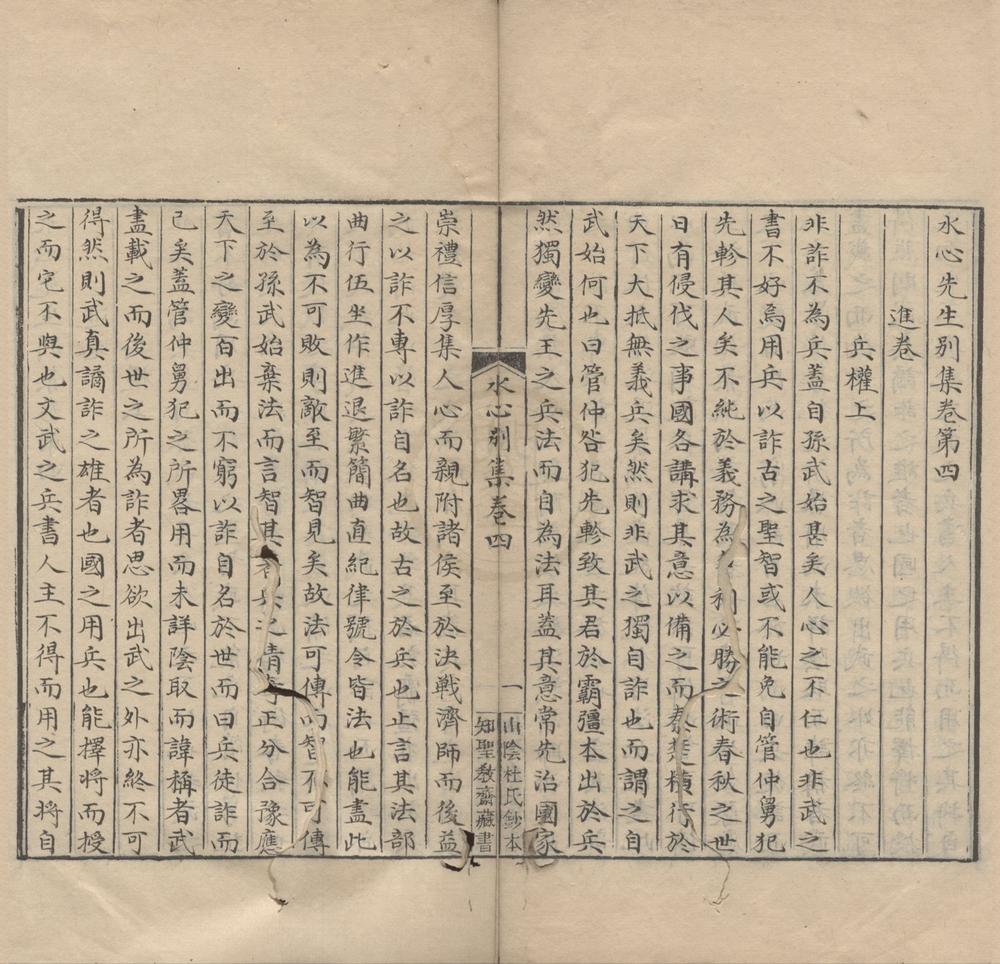 水心先生別集卷第四
進卷
兵權上
非詐不為兵蓋自孫武始甚矣人心之不仁也非武之
書不好為用兵以詐古之聖智或不能免自管仲舅犯
先軫其人矣不純於義務為 利必勝之術春秋之世
日有侵伐之事國各講求其意以備之而秦楚橫行於
天下大抵無義兵矣然則非武之獨自詐也而謂之自
武始何也曰管仲咎犯先軫致其君於霸彊本出於兵
然獨變先王之兵法而自為法耳蓋其意常先治國家
水心別集卷四
一
山陰杜氏鈔本
知聖教齋藏書
崇禮信厚集人心而親附諸侯至於決戰濟師而後益
之以詐不專以詐自名也故古之於兵也止言其法部
曲行伍坐作進退繁簡曲直紀律號令皆法也能盡此
以為不可敗則敵至而智見矣故法可傳而智不可傳
至於孫武始棄法而言智其 之情奇正分合豫應
天下之變百出而不窮以詐自名於世而曰兵徒詐而
已矣蓋管仲舅犯之所畧用而未詳陰取而諱稱者武
盡載之而後世之所為詐者思欲出武之外亦終不可
得然則武真譎詐之雄者也國之用兵也能擇將而授
之而宅不與也文武之兵書人主不得而用之其將自